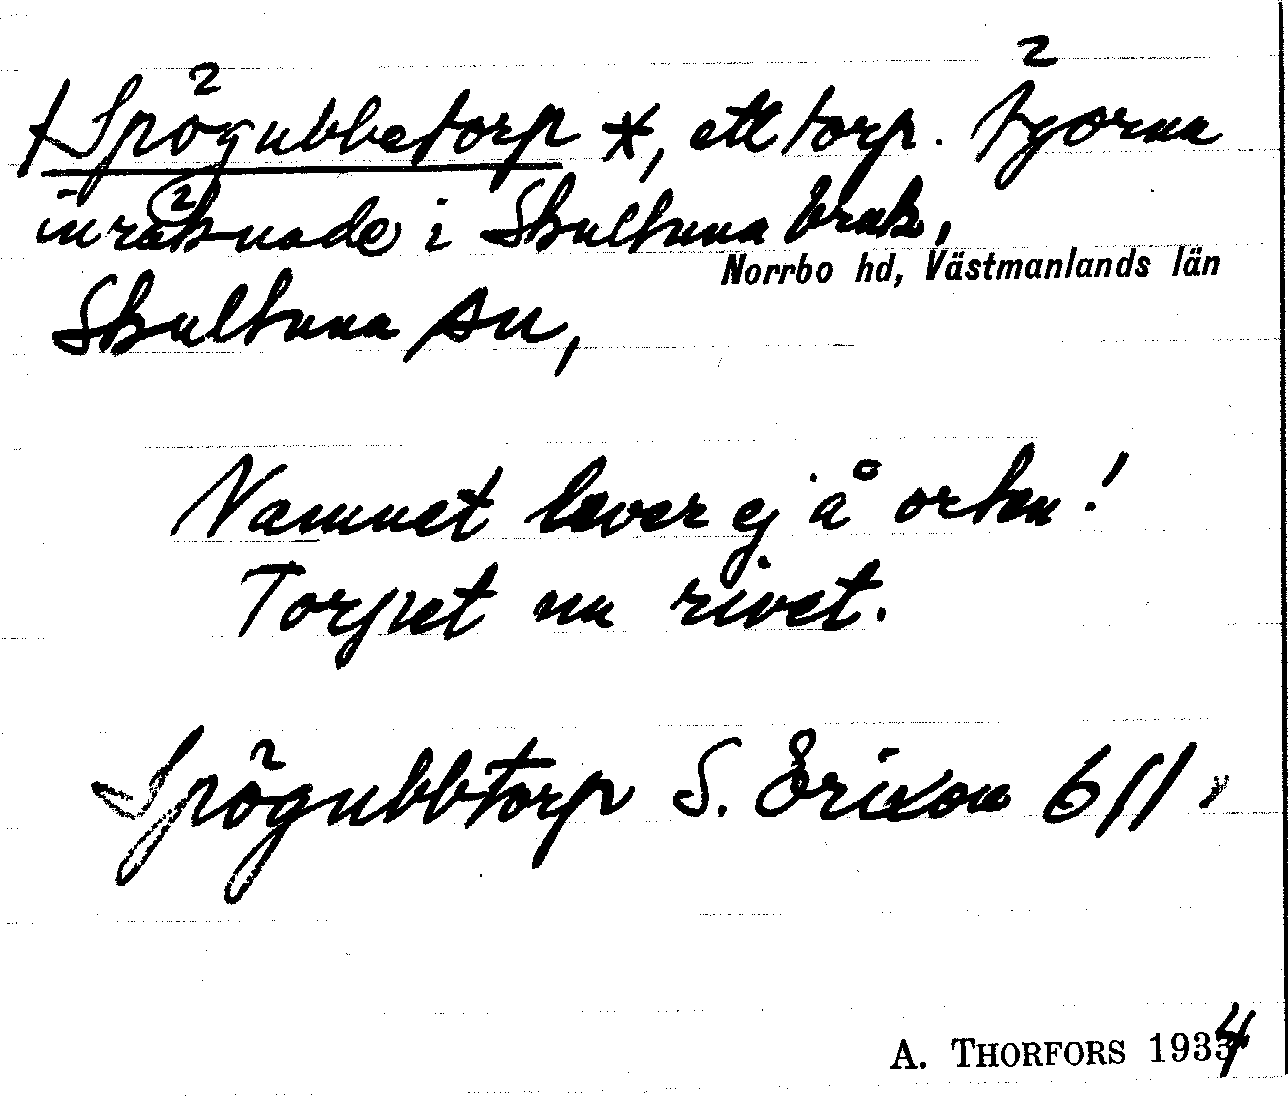 † Spögubbetorp *, ett torp. Ägorna
inräknade i Skultuna bruk,
Norrbo hd, Västmanlands län
Skultuna sn,
Namnet lever ej å orten!
Torpet nu rivet.
Spögubbtorp S. Erixon 6/1
A. THORFORS 1934